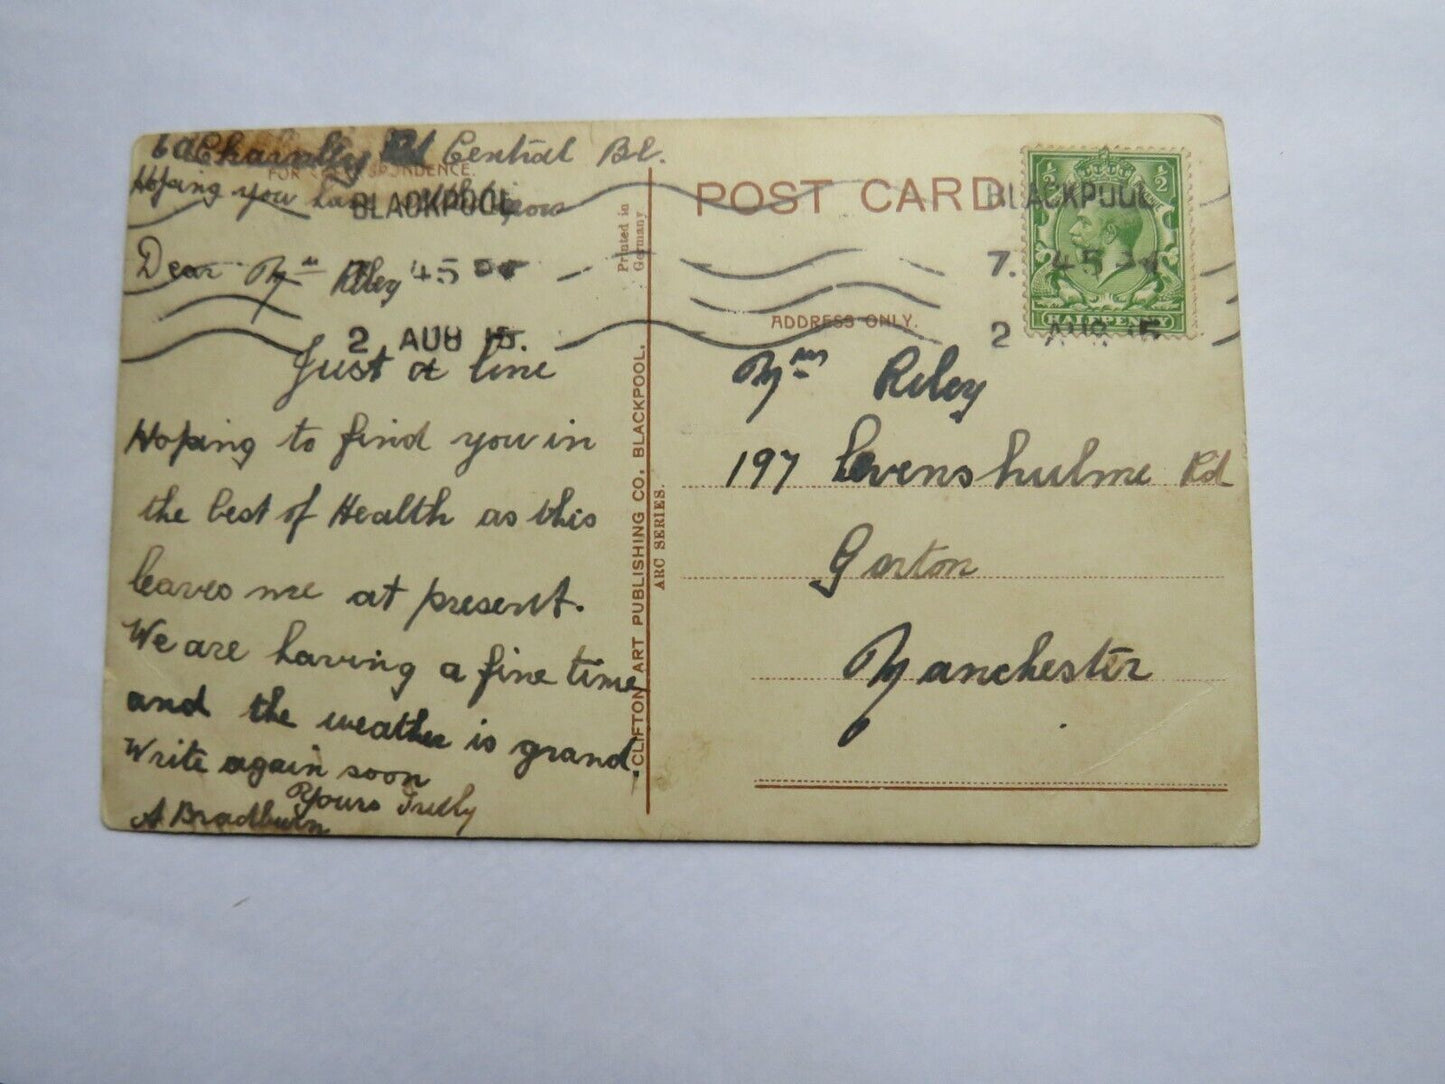 Charnley Rd Central Bl.
FOR CORRESPONDENCE.
Hoping you
BLACKPOOL
Dear Mrs Riley
7. 45
2 AUG 15.
Just a line
Hoping to find you in
the best of Health as this
leaves me at present.
We are having a fine time
and the weather is grand.
Write again soon
Yours Trully
A. Bradburn
Printed in
Germany
CLIFTON ART PUBLISHING CO., BLACKPOOL.
ARC SERIES.
POST CARD
BLACKPOOL
7. 45
2 AUG 15
1/2 1/2
HALFPENNY
ADDRESS ONLY.
Mrs Riley
197 Levenshulme Rd
Gorton
Manchester